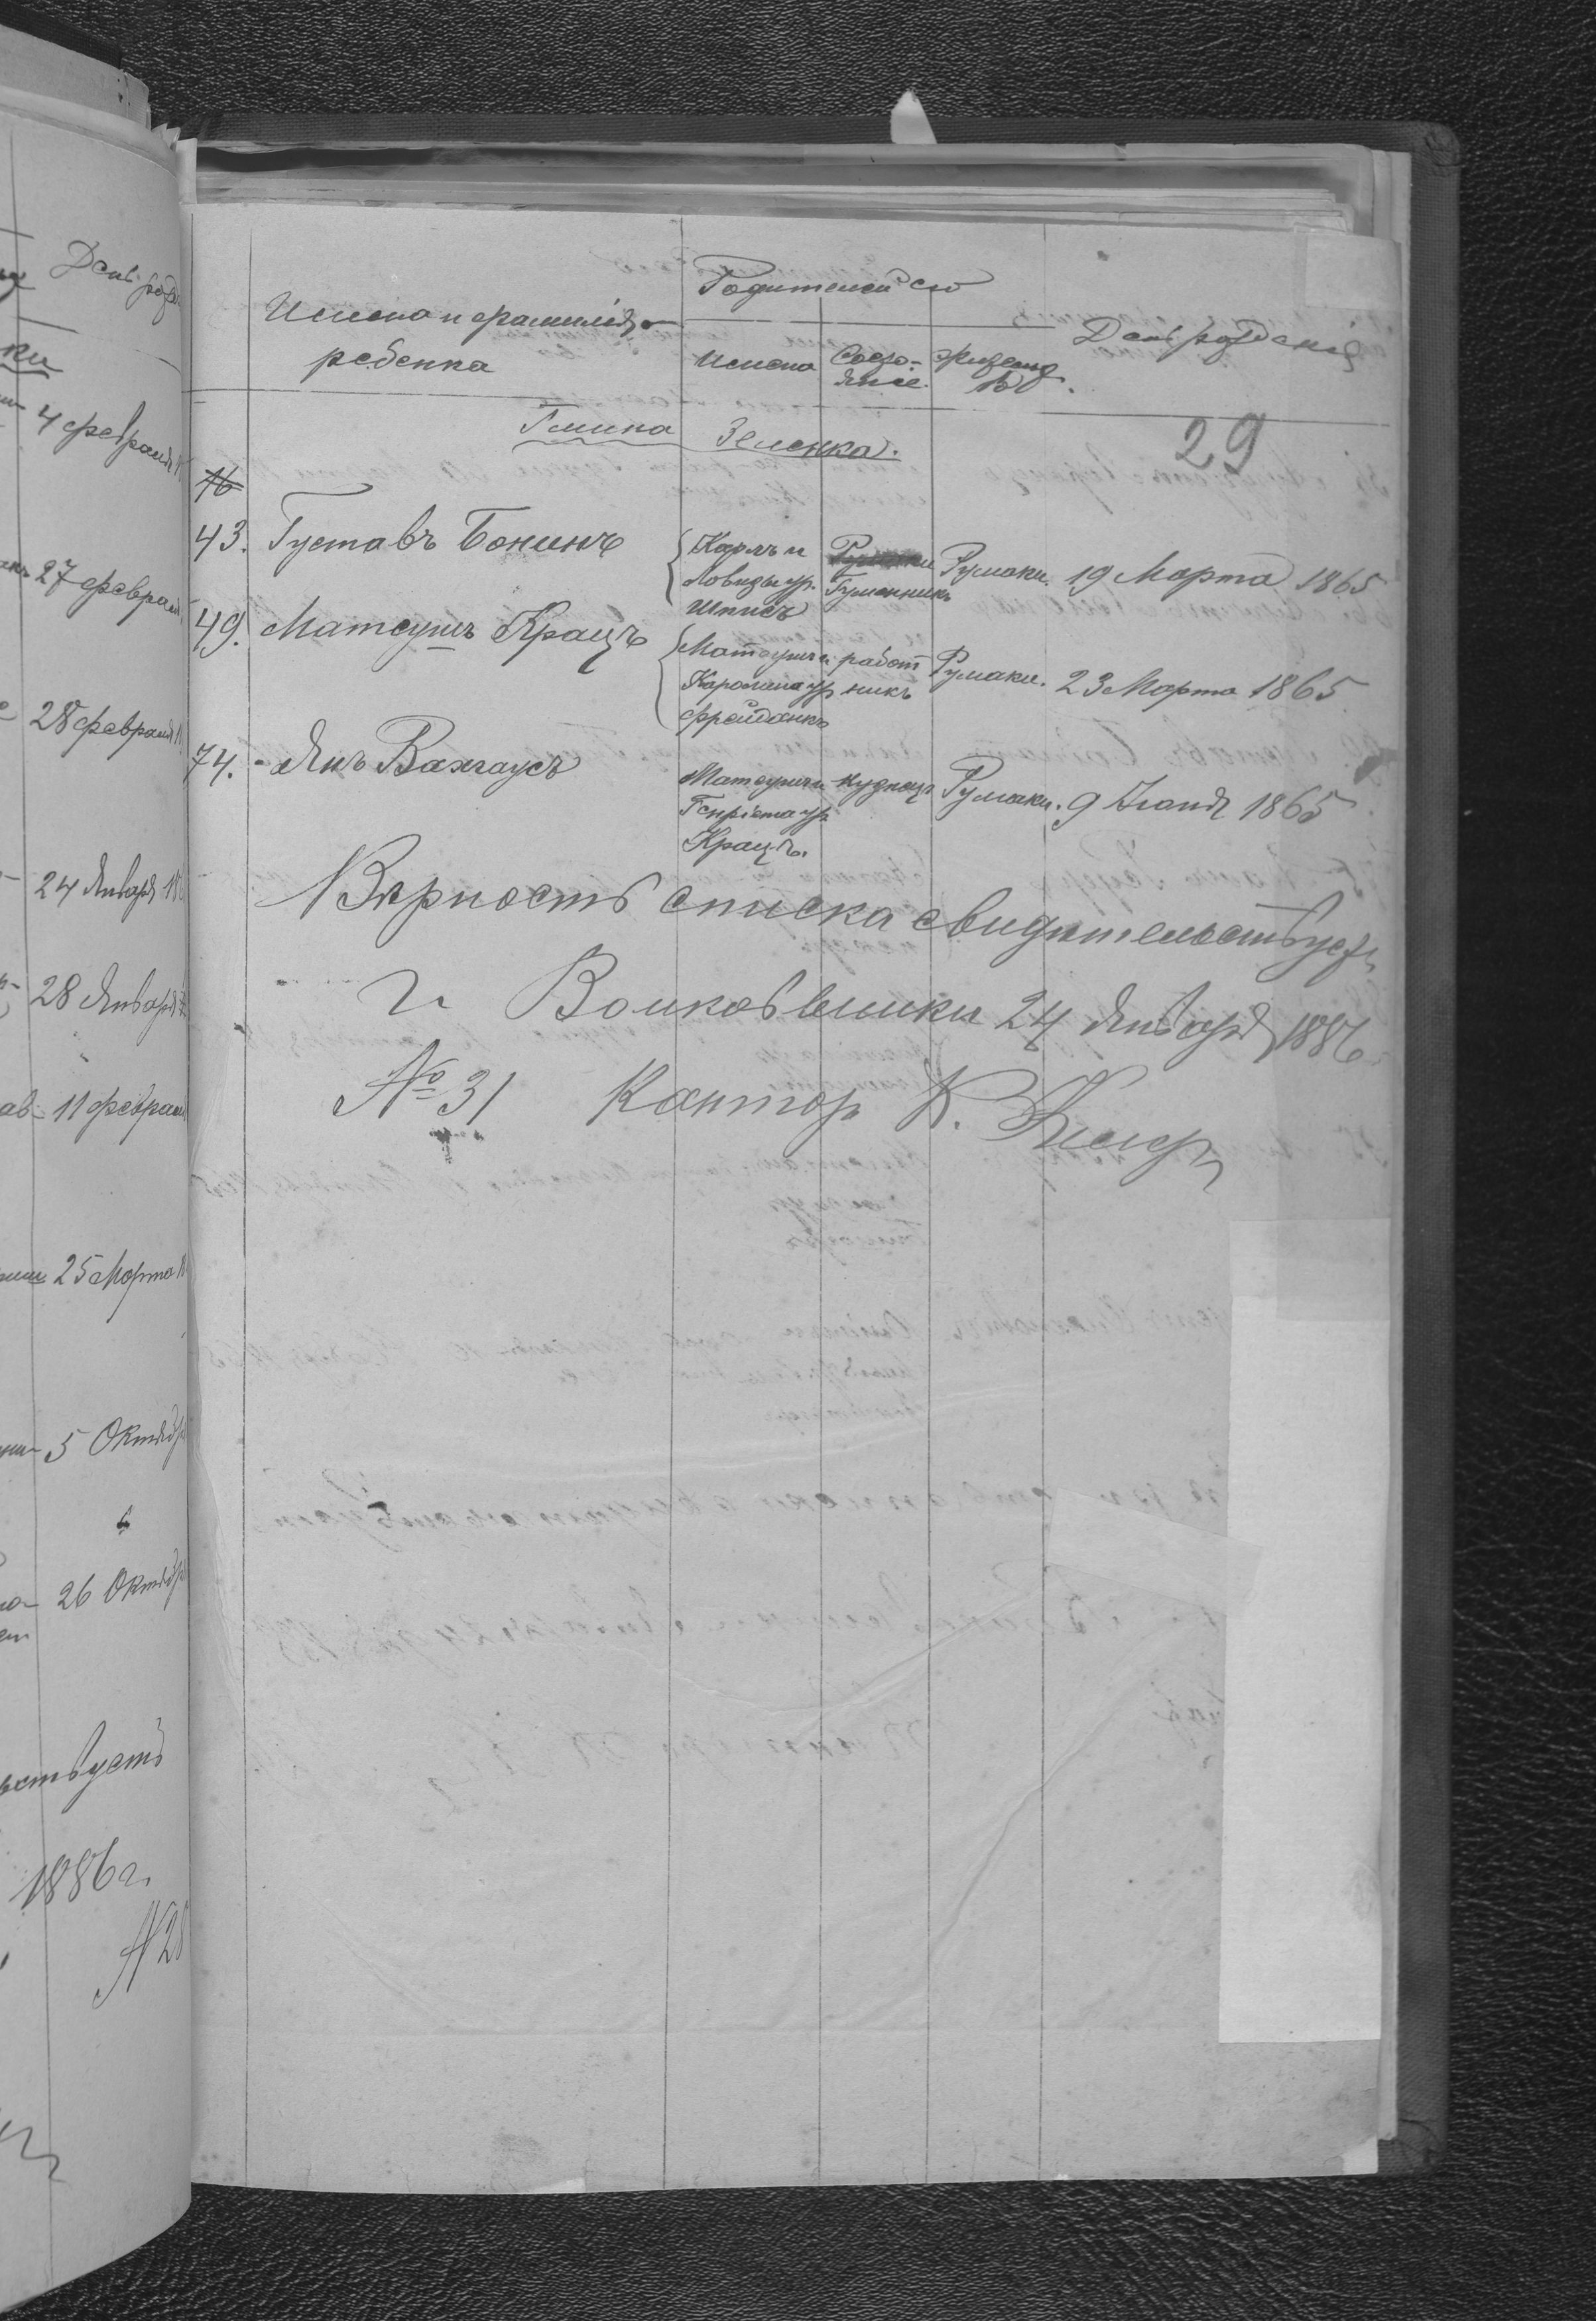 День рожд
ки
4 февраля
27 феврал
28 февраля
24 Января 18
28 Января
11 феврал
25 Марта
5 Октябр
26 Октябр
ьствуетъ
1886 г.
№ 28
Имена и фамилія
ребенка
Родителей его
Имена
Состо-
яніе
Жителѣ
въ
День рожденія
Гмина Зеленка.
29
43. Густавъ Бонинъ
Карлъ и
Ловизы ур.
Шписъ
Гуменникъ
Румаки. 19 Марта 1865
49. Матеушъ Крацъ
Матеушъ и работ
Каролина ур никъ
Фрейданкъ
Румаки. 23 Марта 1865
74. Янъ Вахгаусъ
Матеушъ и кузнецъ
Генріета ур
Крацъ.
Румаки. 9 Іюня 1865
Вѣрность списка свидѣтельствуетъ
г. Волковышки 24 Января 1886
№ 31 Кантор К.